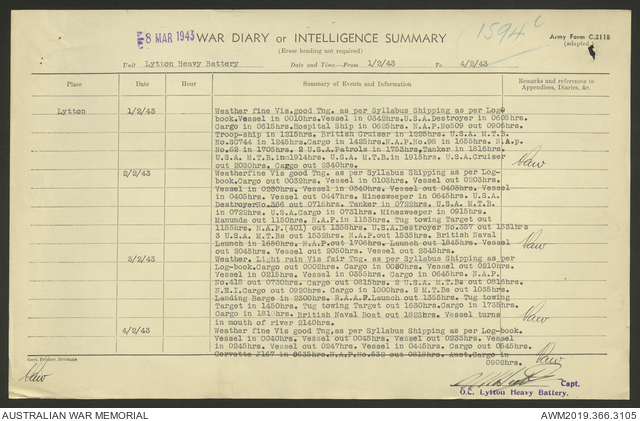 8 MAR 1943 WAR DIARY or INTELLIGENCE SUMMARY
1594 c
Army Form C.2118
(adapted)
(Erase heading not required)
Unit Lytton Heavy Battery Date and Time—From 1/2/43 To 4/2/43
Place Date Hour Summary of Events and Information Remarks and references to Appendices, Diaries, &c.
Lytton 1/2/43 Weather fine Vis.good Tng. as per Syllabus Shipping as per Log-
book.Vessel in 0010hrs.Vessel in 0342hrs.U.S.A.Destroyer in 0605hrs.
Cargo in 0615hrs.Hospital Ship in 0625hrs. N.A.P.No509 out 0905hrs.
Troop-ship in 1215hrs. British Cruiser in 1225hrs. U.S.A. M.T.B.
No.SC744 in 1245hrs.Cargo in 1425hrs.N.A.P.No.98 in 1655hrs. N.A.p.
No.62 in 1705hrs. 2 U.S.A.Patrols in 1753hrs,Tanker in 1816hrs.
U.S.A. M.T.B.in1914hrs. U.S.A. M.T.B.in 1915hrs. U.S.A.Cruiser
out 2030hrs. Cargo out 2340hrs.
2/2/43 Weatherfine Vis good Tng. as per Syllabus Shipping as per Log-
book.Cargo out 0032hrs. Vessel in 0103hrs. Vessel out 0203hrs.
Vessel in 0230hrs. Vessel in 0340hrs. Vessel out 0403hrs. Vessel
in 0405hrs. Vessel out 0447hrs. Minesweeper in 0645hrs. U.S.A.
DestroyerNo.366 out 0715hrs. Tanker in 0722hrs. U.S.A. M.T.B.
in 0722hrs. U.S.A.Cargo in 0731hrs. Minesweeper in 0915hrs.
Manunda out 1150hrs. N.A.P.in 1153hrs. Tug towing Target out
1155hrs. N.A.P.(401) out 1358hrs. U.S.A.Destroyer No.357 out 1531hrs
3 U.S.A. M.T.Bs out 1532hrs. N.A.P.out 1535hrs. British Naval
Launch in 1650hrs. N.A.P.out 1706hrs. Launch out 1845hrs. Vessel
out 2045hrs. Vessel out 2050hrs. Vessel out 2345hrs.
3/2/43 Weather. Light rain Vis fair Tng. as per Syllabus Shipping as per
Log-book.Cargo out 0002hrs. Cargo in 0020hrs. Vessel out 0210hrs.
Vessel in 0215hrs. Vessel in 0355hrs. Cargo in 0645hrs. N.A.P.
No.418 out 0730hrs. Cargo out 0815hrs. 2 U.S.A. M.T.Bs out 0816hrs.
H.E.I.Cargo out 0920hrs. Cargo in 1000hrs. 2 M.T.Bs out 1035hrs.
Landing Barge in 2300hrs. R.A.A.F.Launch out 1355hrs. Tug towing
Target in 1450hrs. Tug towing Target out 1630hrs.Cargo in 1735hrs.
Cargo in 1812hrs. British Naval Boat out 1823hrs. Vessel turns
in mouth of river 2140hrs.
4/2/43 Weather fine Vis good Tng,as per Syllabus Shipping as per Log-book.
Vessel in 0040hrs. Vessel out 0045hrs. Vessel out 0235hrs. Vessel
in 0245hrs. Vessel out 0247hrs. Vessel in 0445hrs. Cargo out 0545hrs.
Corvette J167 in 0635hrs.N.A.P.No.532 out 0818hrs. Aust.Cargo in
0902hrs.
Govt. Printer, Brisbane
Capt.
O.C. Lytton Heavy Battery.
AUSTRALIAN WAR MEMORIAL AWM2019.366.3105